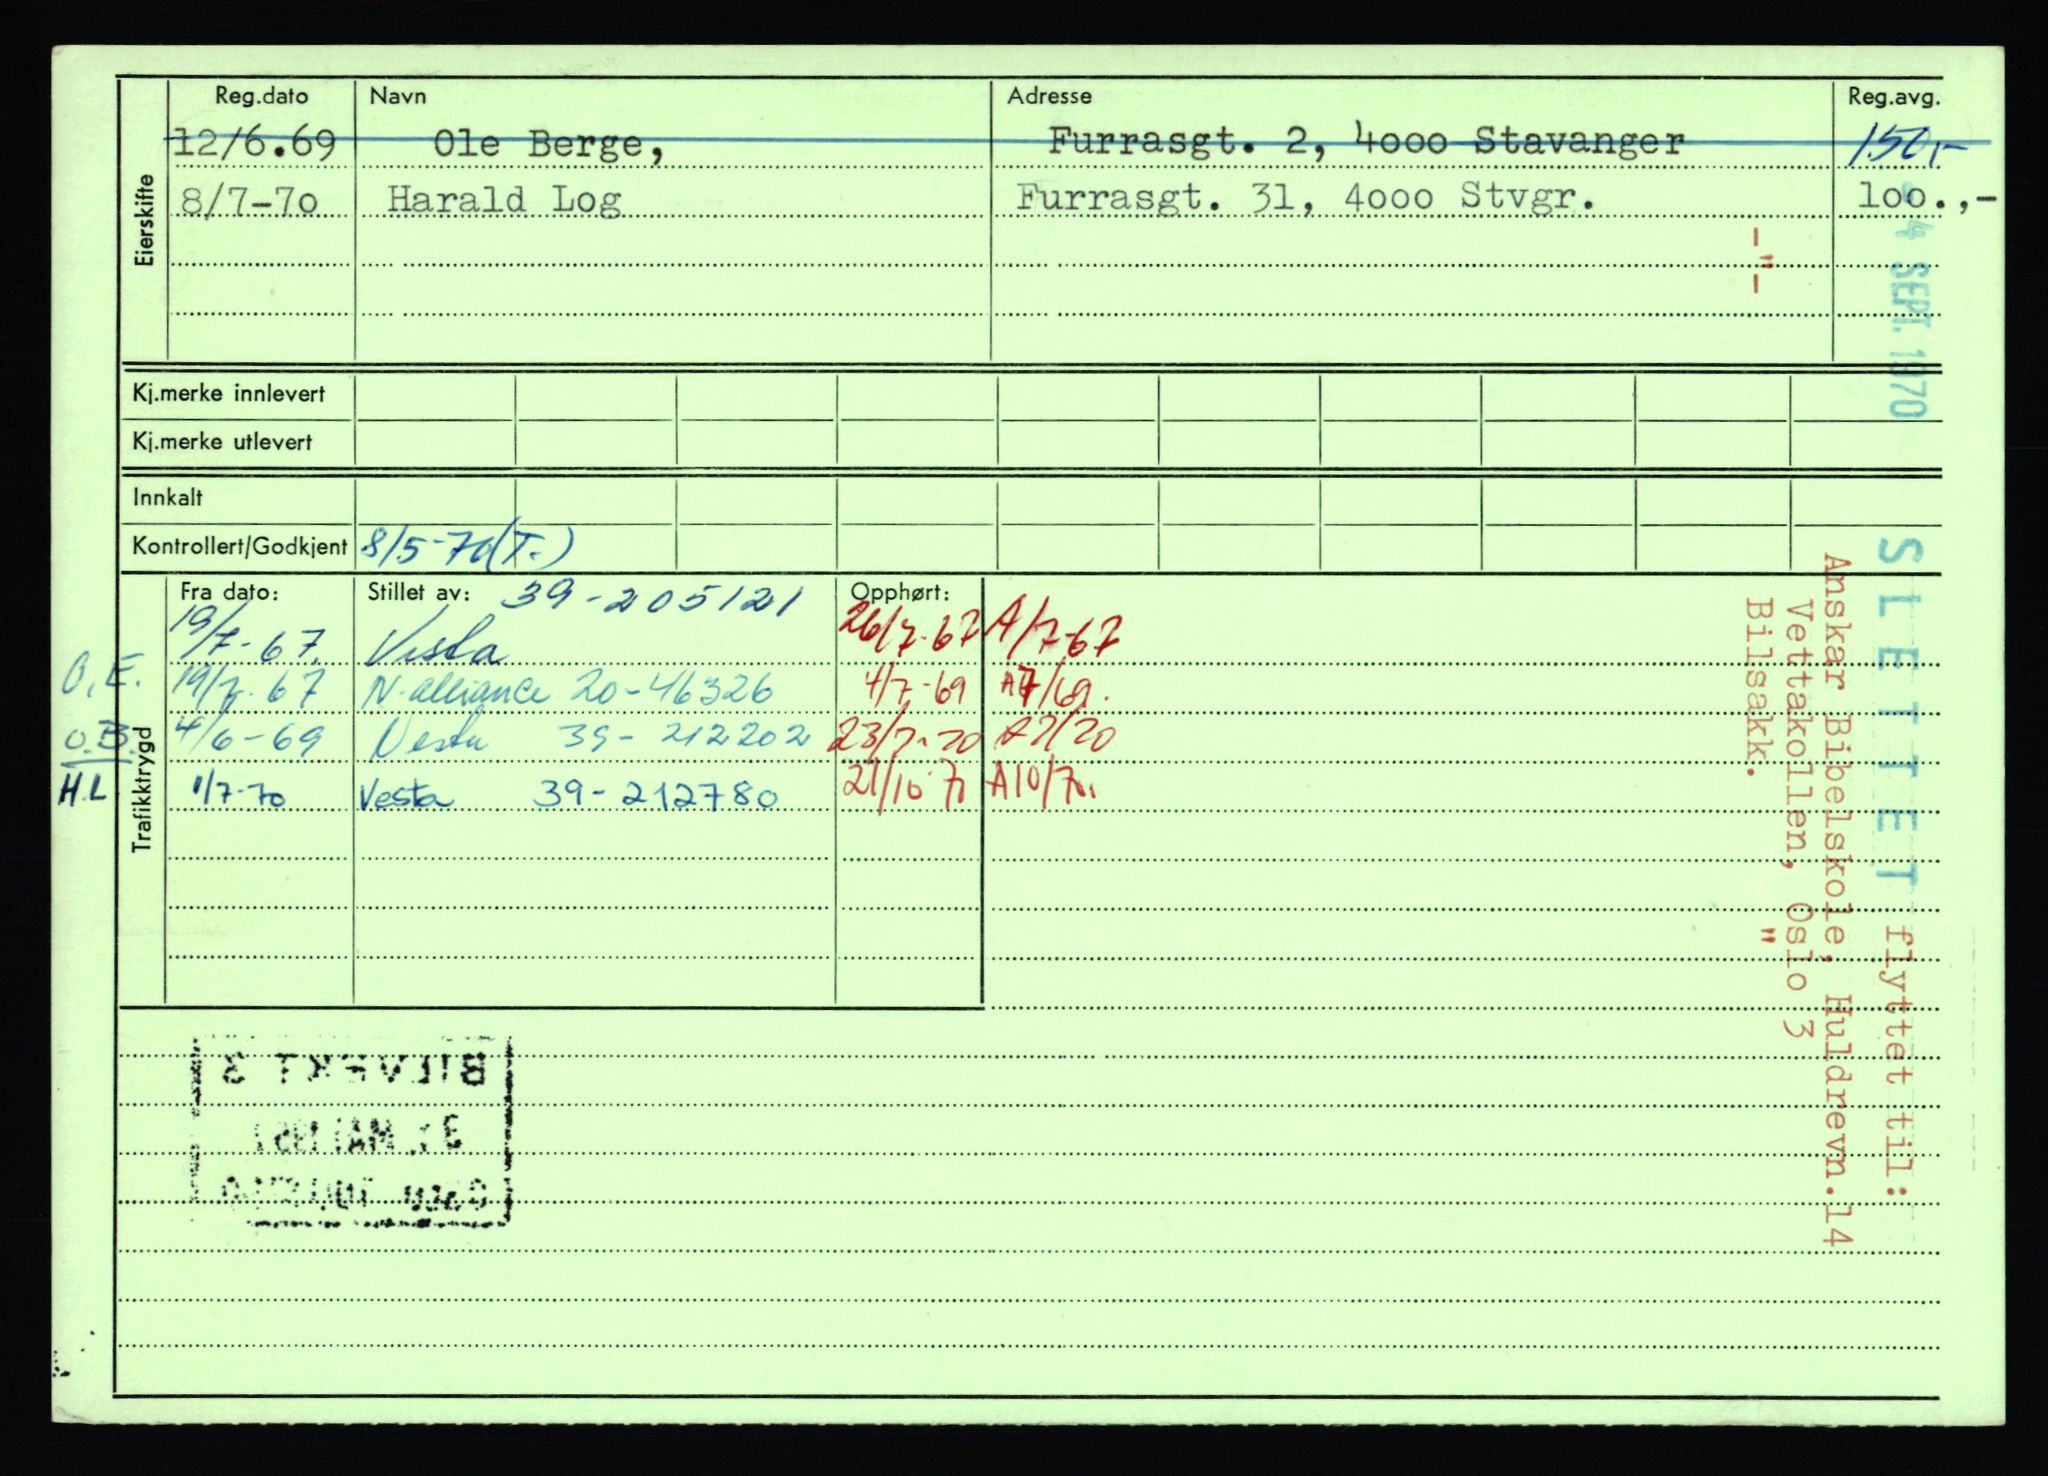 Reg.dato Navn Adresse Reg.avg.
Eierskifte
12/6.69 Ole Berge, Furrasgt. 2, 4000 Stavanger 150,-
8/7-70 Harald Log Furrasgt. 31, 4000 Stvgr. 100.,-
Kj.merke innlevert
Kj.merke utlevert
Innkalt
Kontrollert/Godkjent 8/5-70 (T.)
Trafikktrygd
Fra dato: Stillet av: 39-205121 Opphørt:
19/7-67. Vesta 26/7-67 A/7-67
O.E. 19/7-67 N.alliance 20-46326 4/7-69 A7/69.
O.B. 4/6-69 Vesta 39-212202 23/7-70 A7/70
H.L 1/7-70 Vesta 39-212780 21/10-70 A10/70.
4 SEPT. 1970
SLETTET flyttet til:
Anskar Bibelskole, Huldrevn.14
Vettakollen, Oslo 3
-"- Bilsakk. "
BILVEKT S
31. MAI 1967